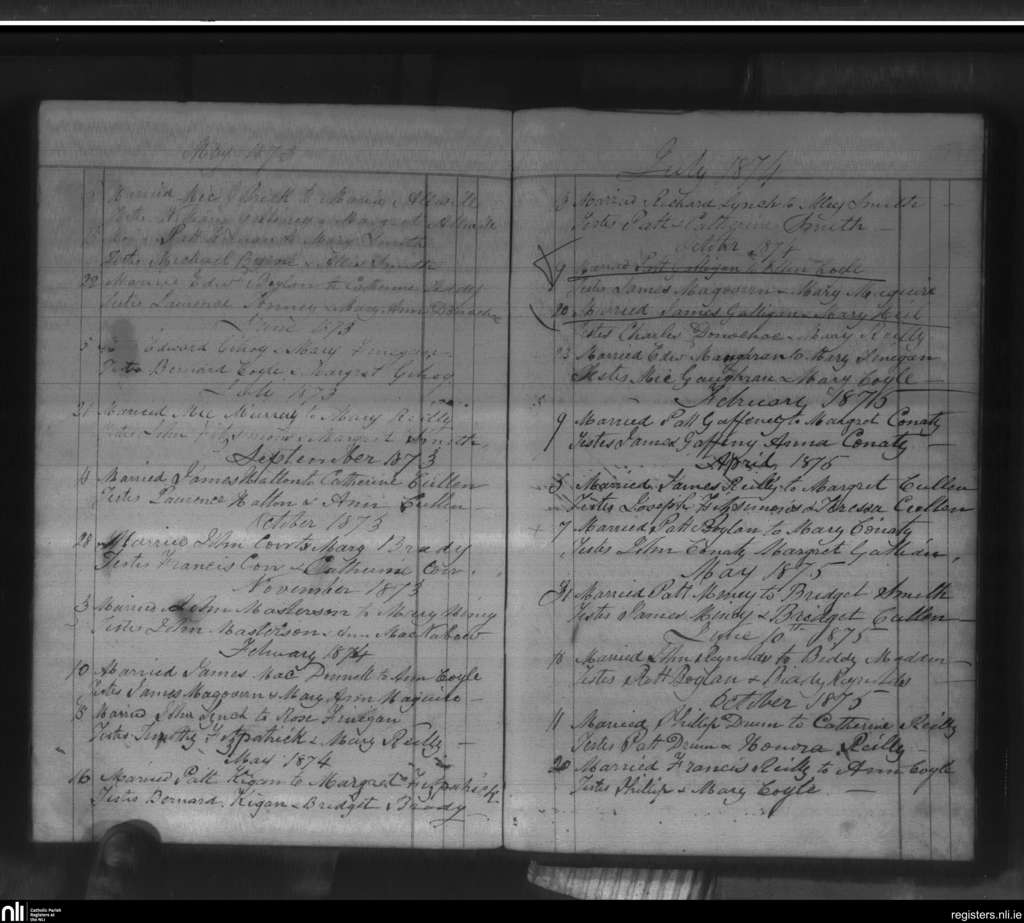 May 1873
Married Mic to Maria
Margret
Patt to Mary Smith
Testes Michael & Smith
22 Married Edw Boylan to Catherine
Testes Laurence & Mary Ann Donoahoe
June 1873
5 Edward Gilroy & Mary Finegan
Testes Bernard Coyle & Margret Gilroy
July 1873
21 Married Mic Murray to Mary Reilly
Testes John Fitzsimons & Margret Smith
September 1873
4 Married James Hatton to Catherine Cullen
Testes Laurence Hatton & Ann Cullen
October 1873
28 Married John Corr to Mary Brady
Testes Francis Corr & Catherine Corr
November 1873
3 Married John Masterson to Mary
Testes John Masterson & Ann MacNabow
Febuary 1874
10 Married James Mac Donnell to Ann Coyle
Testes James Magovern & Mary Ann Maguire
Married John Lynch to Rose Finegan
Testes Timothy Fitzpatrick & Mary Reilly
May 1874
16 Married Patt Kigan to Margret Fitzpatrick
Testes Bernard Kigan & Bridget Brady
July 1874
3 Married Richard Lynch to Smith
Testes Patt & Catherine Smith
October 1874
9 Married Patt Galligan to Ellen
Testes James Magovern & Mary Maguire
20 Married James Galligan & Mary
Testes Charles Donoehoe & Mary Reilly
23 Married Edw Maughran to Mary Finegan
Testes Mic Gaughran & Mary Coyle
February 1875
9 Married Patt Gaffeney to Margret Conaty
Testes James Gaffiny Anna Conaty
April 1875
5 Married James Reilly to Margret Cullen
Testes Joseph Fitzsimons & Theressa Cullen
7 Married Patt Boylan to Mary Conaty
Testes John Conaty Margret
May 1875
31 Married Patt to Bridget Smith
Testes James & Bridget Cullen
10th 1875
Married John Reynolds to Biddy Madden
Testes Patt Boylan & Reynolds
October 1875
11 Married Phillip Drum to Catherine Reilly
Testes Patt Drum & Honora Reilly
20 Married Francis Reilly to Ann Coyle
Testes Phillip & Mary Coyle
nli
Catholic Parish
Registers at
the NLI
registers.nli.ie